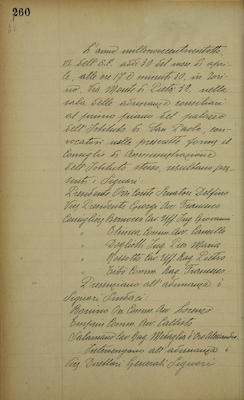 260
L'anno millenovecentotrentotto
VI dell'E.F. addì 30 del mese di apri-
le, alle ore 17 e minuti 30, in Tori-
no, Via Monte di Pietà 32, nella
sala delle adunanze consiliari
al primo piano del palazzo
dell'Istituto di San Paolo, con-
vocatosi nelle prescritte forme il
Consiglio di Amministrazione
dell'Istituto stesso, risultano pre-
senti i Signori:
Presidente On. Conte Senatore Delfino
Vice Presidente Avv. Francesco
Consiglieri Cav. Uff. Ing. Giovanni
" Comm. Avv. Camillo
" Ing. Pio Maria
" Rossotto Cav. Uff. Rag. Pietro
" Comm. Rag. Francesco
Presenziano all'adunanza i
Signori Sindaci
On. Comm. Avv. Lorenzo
Comm. Avv. Callisto
Cav. Rag. Medaglia d'Oro Alessandro
Intervengono all'adunanza i
Vice Direttori Generali Signori